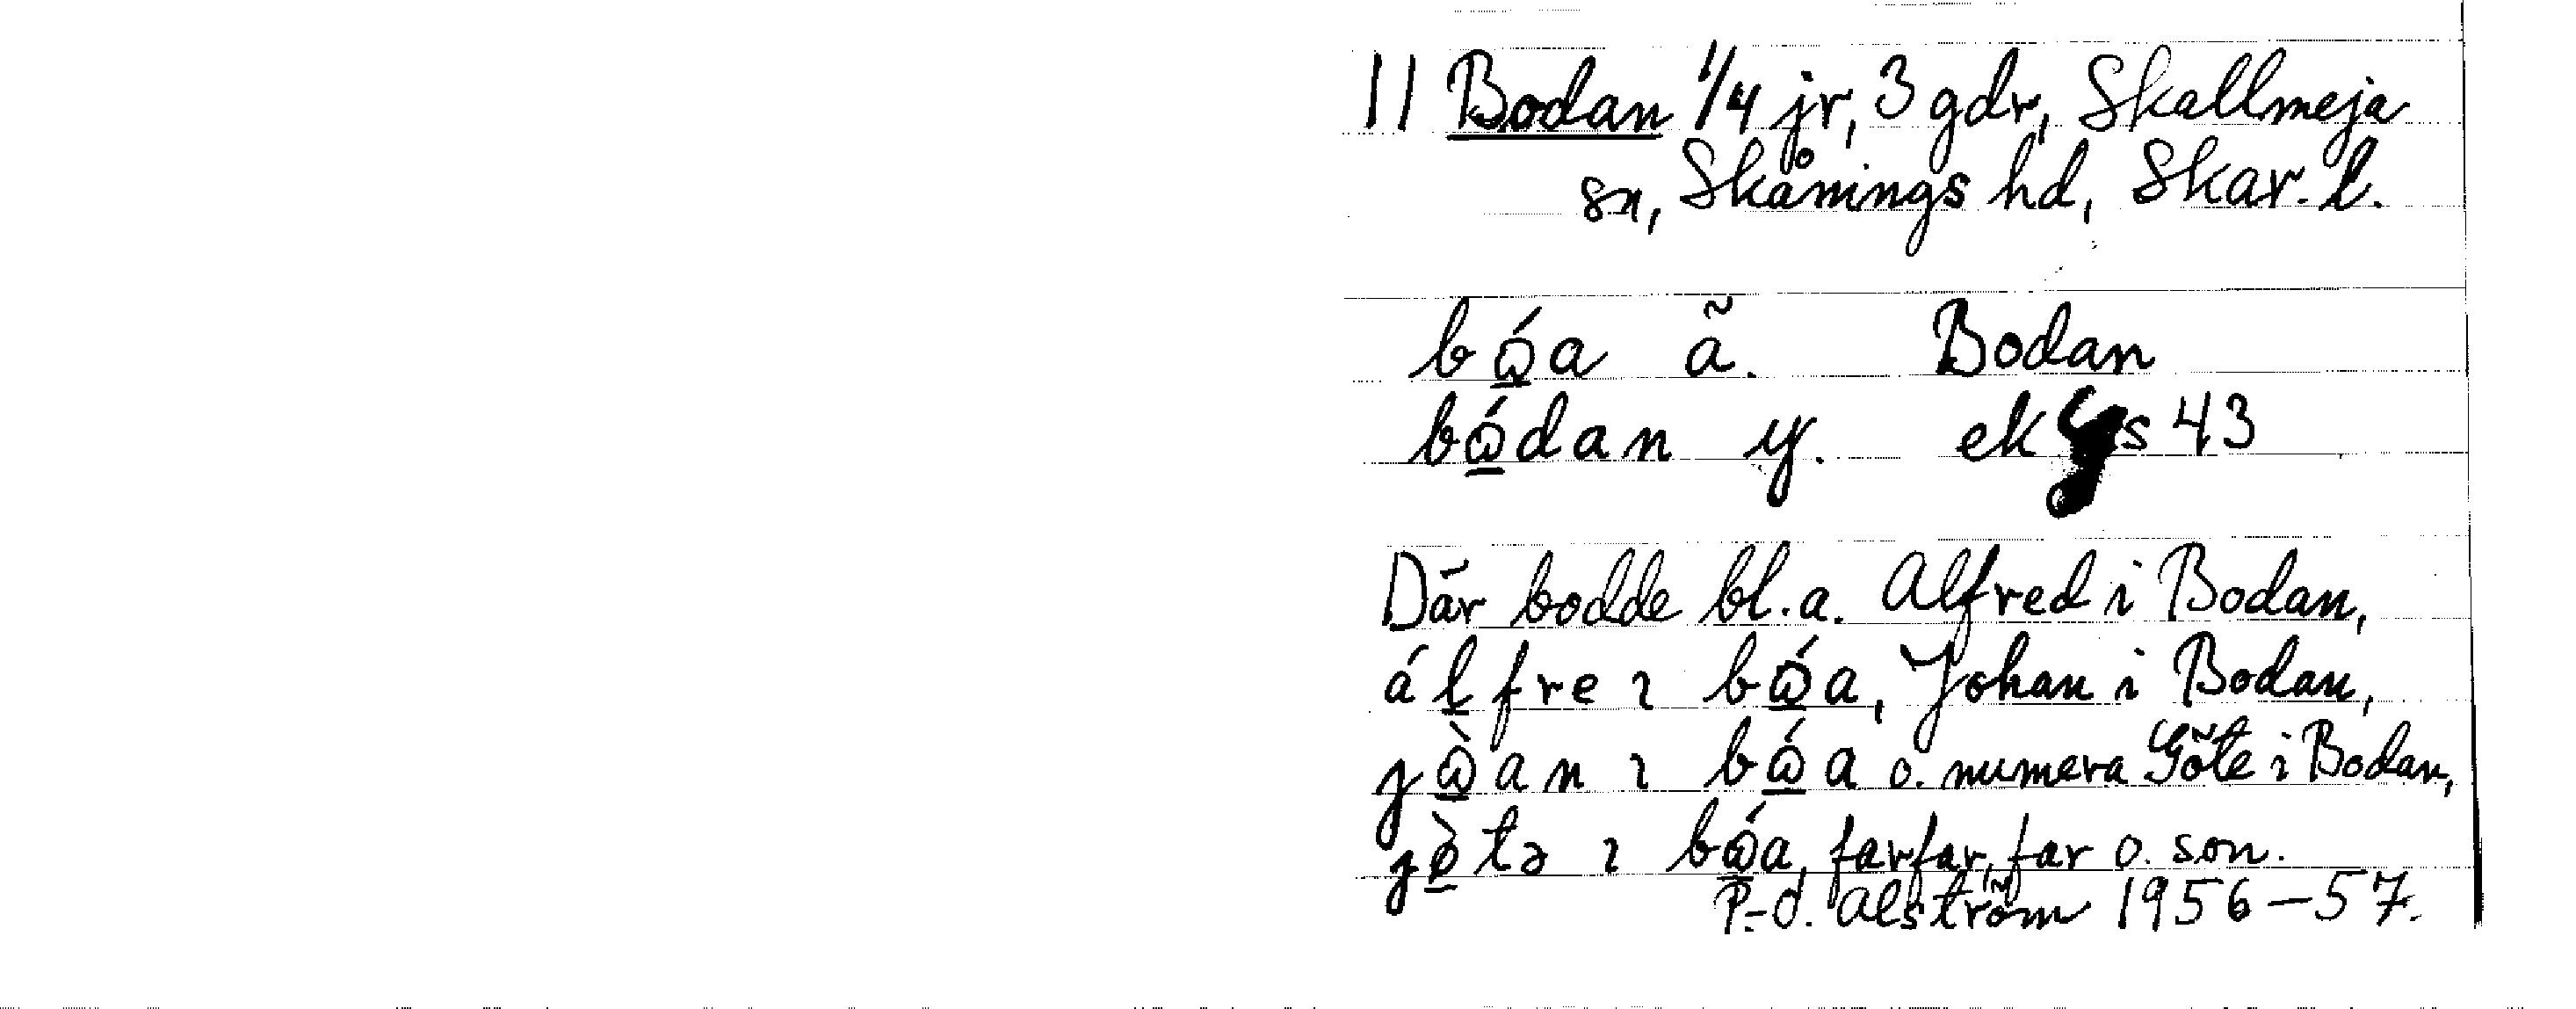 11 Bodan 1/4 jr, 3 gdr, Skallmeja
sn, Skånings hd, Skar. l.
bώ̲a ä. Bodan
bώ̲dan y. ek 9s 43
Där bodde bl.a. Alfred i Bodan,
álfre ı bώ̲a, Johan i Bodan,
jὼ̲an ı bώ̲a o. numera Göte i Bodan,
jø̲̀tə ı bώ̲a, farfar, far o. son.
P.-O. Alström 1956–57.